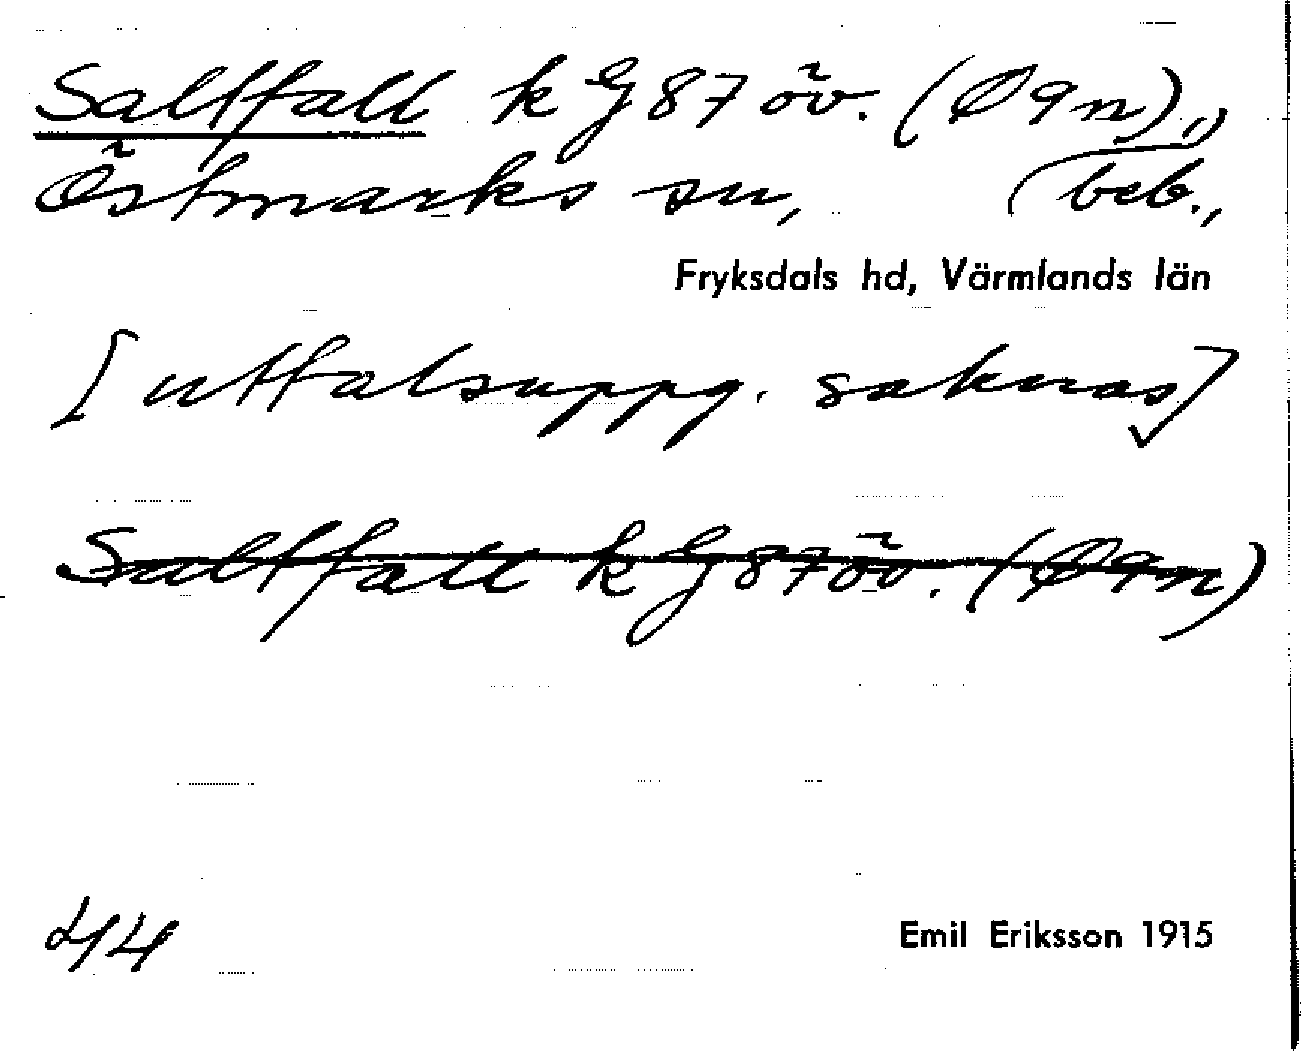 Saltfall k G 87 öv. (Ø 9 n),,
Östmarks sn, (beb.,
Fryksdals hd, Värmlands län
[uttalsuppg. saknas]
Saltfall k G 87 öv. (Ø 9 n)
44
Emil Eriksson 1915